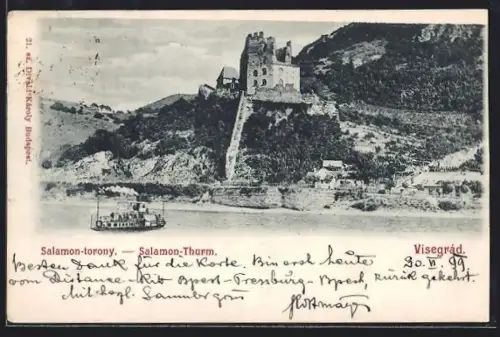 21. sz. Divald Károly Budapest.
Salamon-torony. — Salamon-Thurm. Visegrád.
Besten Dank für die Karte. Bin erst heute 20. VI. 99
vom Distanz-Ritt Bpest-Pressburg-Bpest, zurück gekehrt.
Mit Sammlergruß